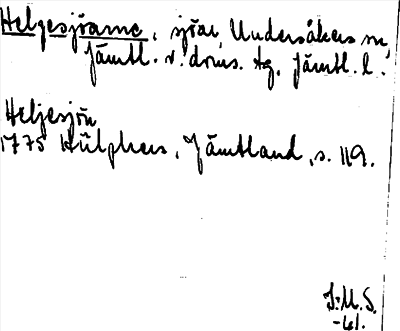 Helgesjöarne, sjöar, Undersåkers sn,
Jämtl. v. doms. tg, Jämtl. l.
Heljesjön
1775 Hülphers, Jämtland, s. 119.
I.M.S.
-61.